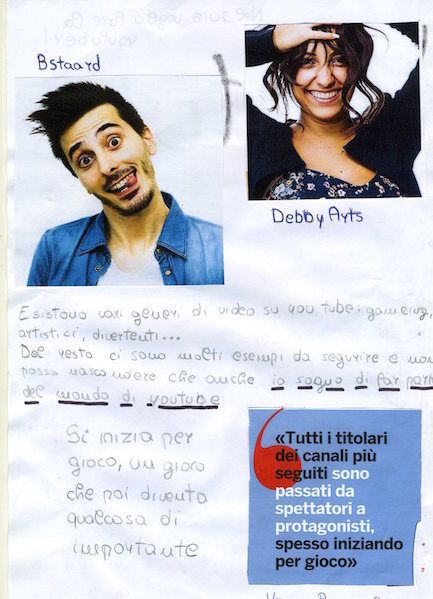 Nel 2016 voglio fare la
youtuber!
Bstaard
Debby Arts
Esistono vari generi di video su you tube: gameing,
artistici, divertenti...
Del resto ci sono molti esempi da seguire e non
posso nascondere che anche io sogno di far part
del mondo di youtube
Si inizia per
gioco, un gioco
che poi diventa
qualcosa di
importante
«Tutti i titolari
dei canali più
seguiti sono
passati da
spettatori a
protagonisti,
spesso iniziando
per gioco»